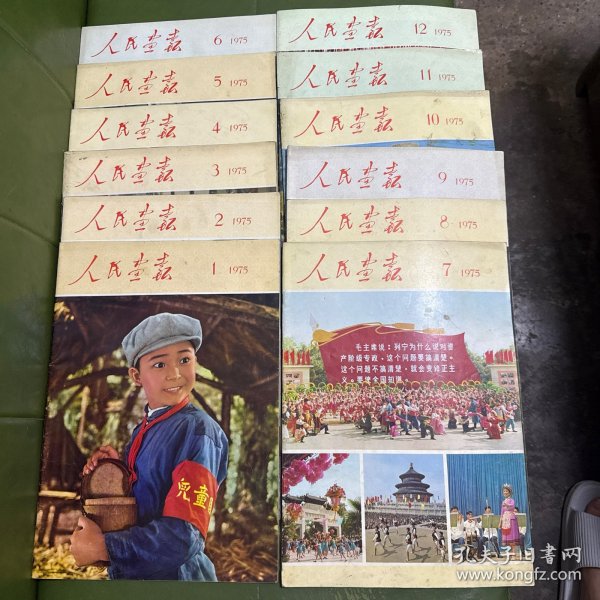 人民画报 6 1975
人民画报 5 1975
人民画报 4 1975
人民画报 3 1975
人民画报 2 1975
人民画报 1 1975
兒童
人民画报 12 1975
人民画报 11 1975
人民画报 10 1975
人民画报 9 1975
人民画报 8 1975
人民画报 7 1975
毛主席说：列宁为什么说对资
产阶级专政，这个问题要搞清楚。
这个问题不搞清楚，就会变修正主
义。要使全国知道。
孔夫子旧书网
www.kongfz.com